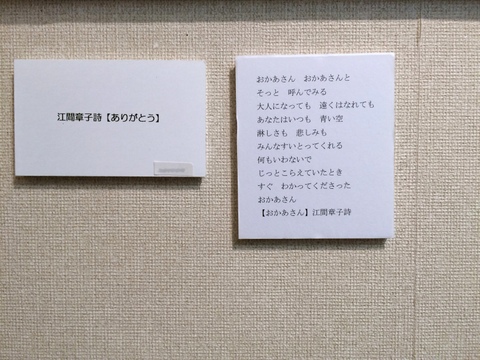 江間章子詩【ありがとう】
おかあさん　おかあさんと
そっと　呼んでみる
大人になっても　遠くはなれても
あなたはいつも　青い空
淋しさも　悲しみも
みんなすいとってくれる
何もいわないで
じっとこらえていたとき
すぐ　わかってくださった
おかあさん
【おかあさん】江間章子詩